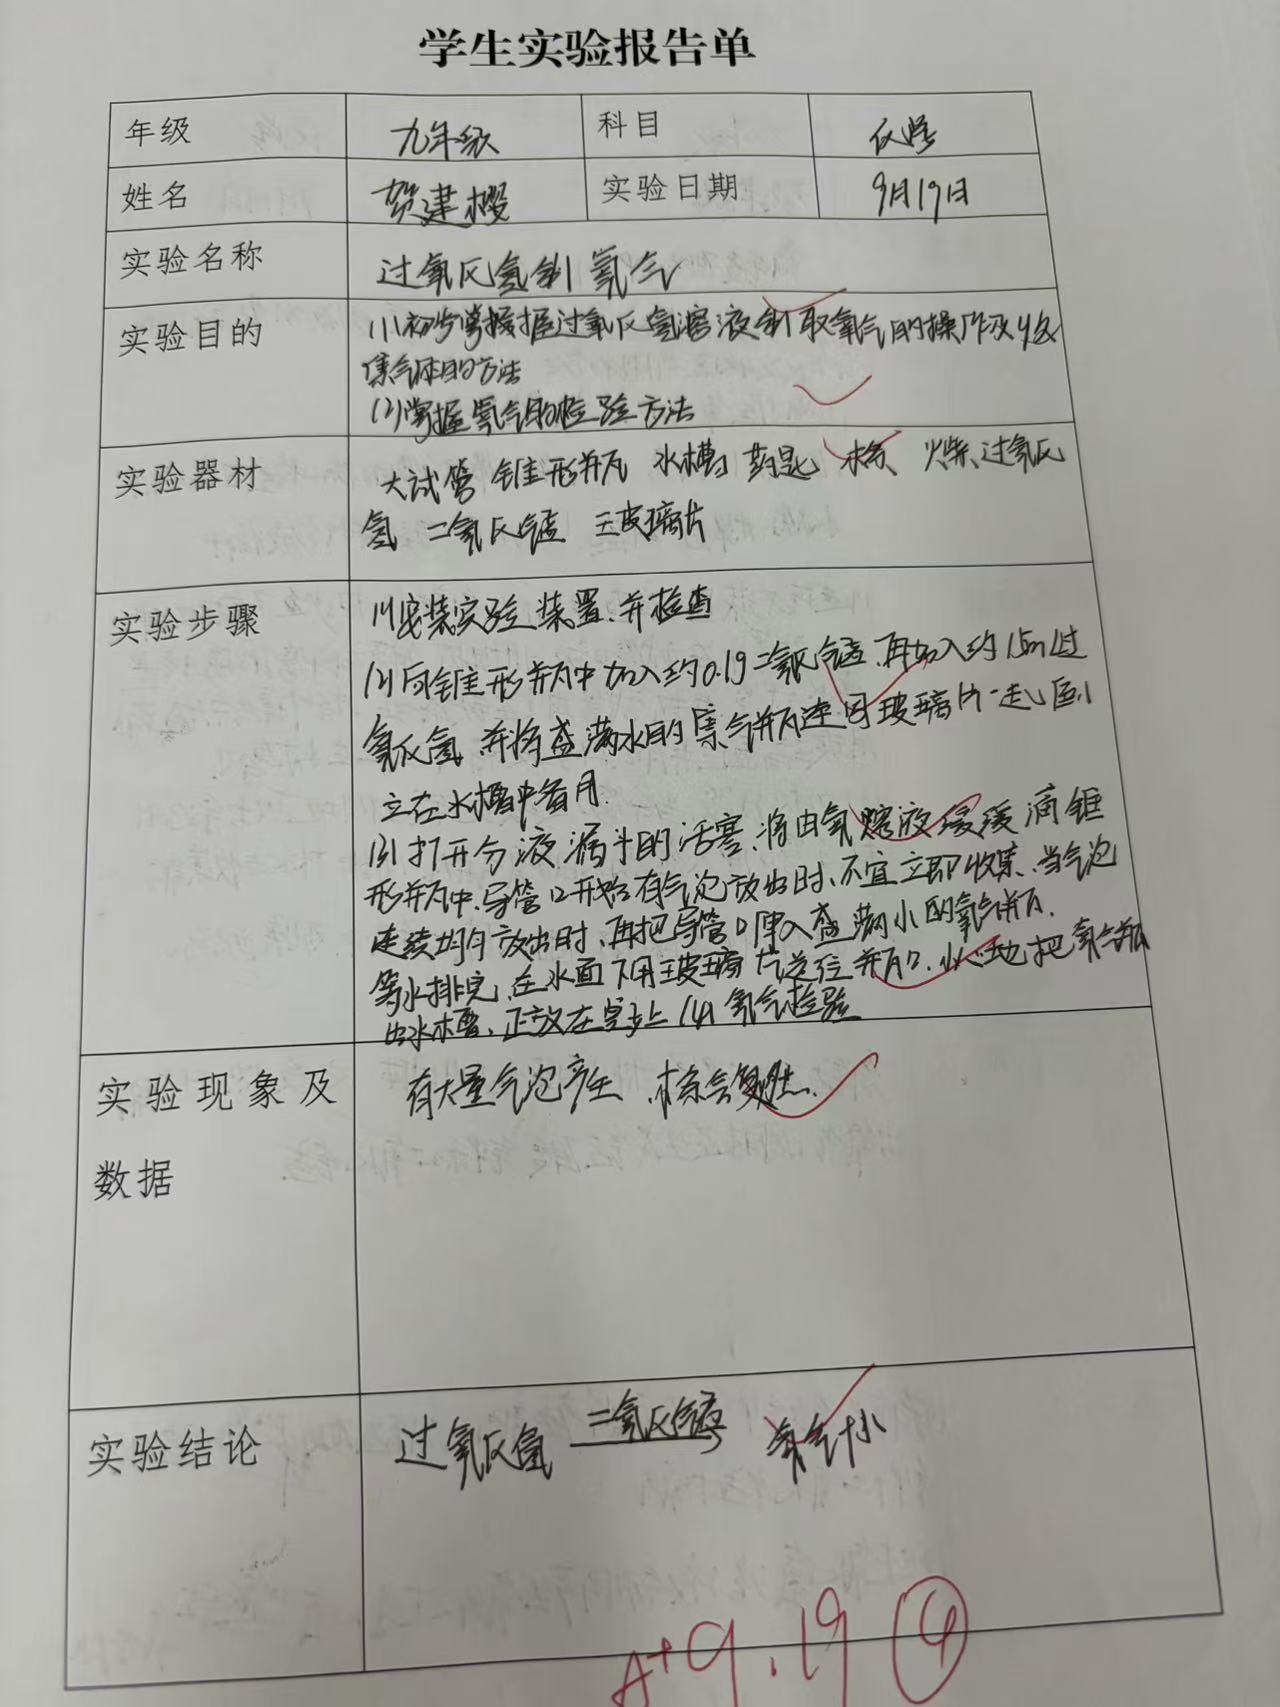 学生实验报告单
年级 九年级 科目 化学
姓名 贺建樱 实验日期 9月19日
实验名称 过氧化氢制氧气
实验目的 (1)初步掌握过氧化氢溶液制取氧气的操作及收
集气体的方法
(2)掌握氧气的检验方法
实验器材 大试管 锥形瓶 水槽 药匙 木条、火柴、过氧化
氢 二氧化锰 玻璃片
实验步骤 (1)安装实验装置、并检查
(2)向锥形瓶中加入约0.1g二氧化锰、再加入约15ml过
氧化氢 并将盛满水的集气瓶连同玻璃片一起倒
立在水槽中备用.
(3)打开分液漏斗的活塞、将由氧溶液缓缓滴锥
形瓶中、导管口开始有气泡放出时、不宜立即收集、当气泡
连续均匀放出时、再把导管口伸入盛满小的氧气瓶.
等水排完、在水面下用玻璃片盖住瓶口、小心地把氧气瓶
出水槽、正放在桌上 (4)氧气检验
实验现象及 有大量气泡产生、木条会复燃.
数据
实验结论 过氧化氢 二氧化锰 氧气+水
A+ 9.19 4